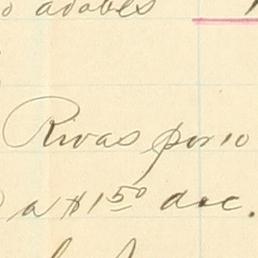 adobes
Rivas por 10
a $1.50 doc.